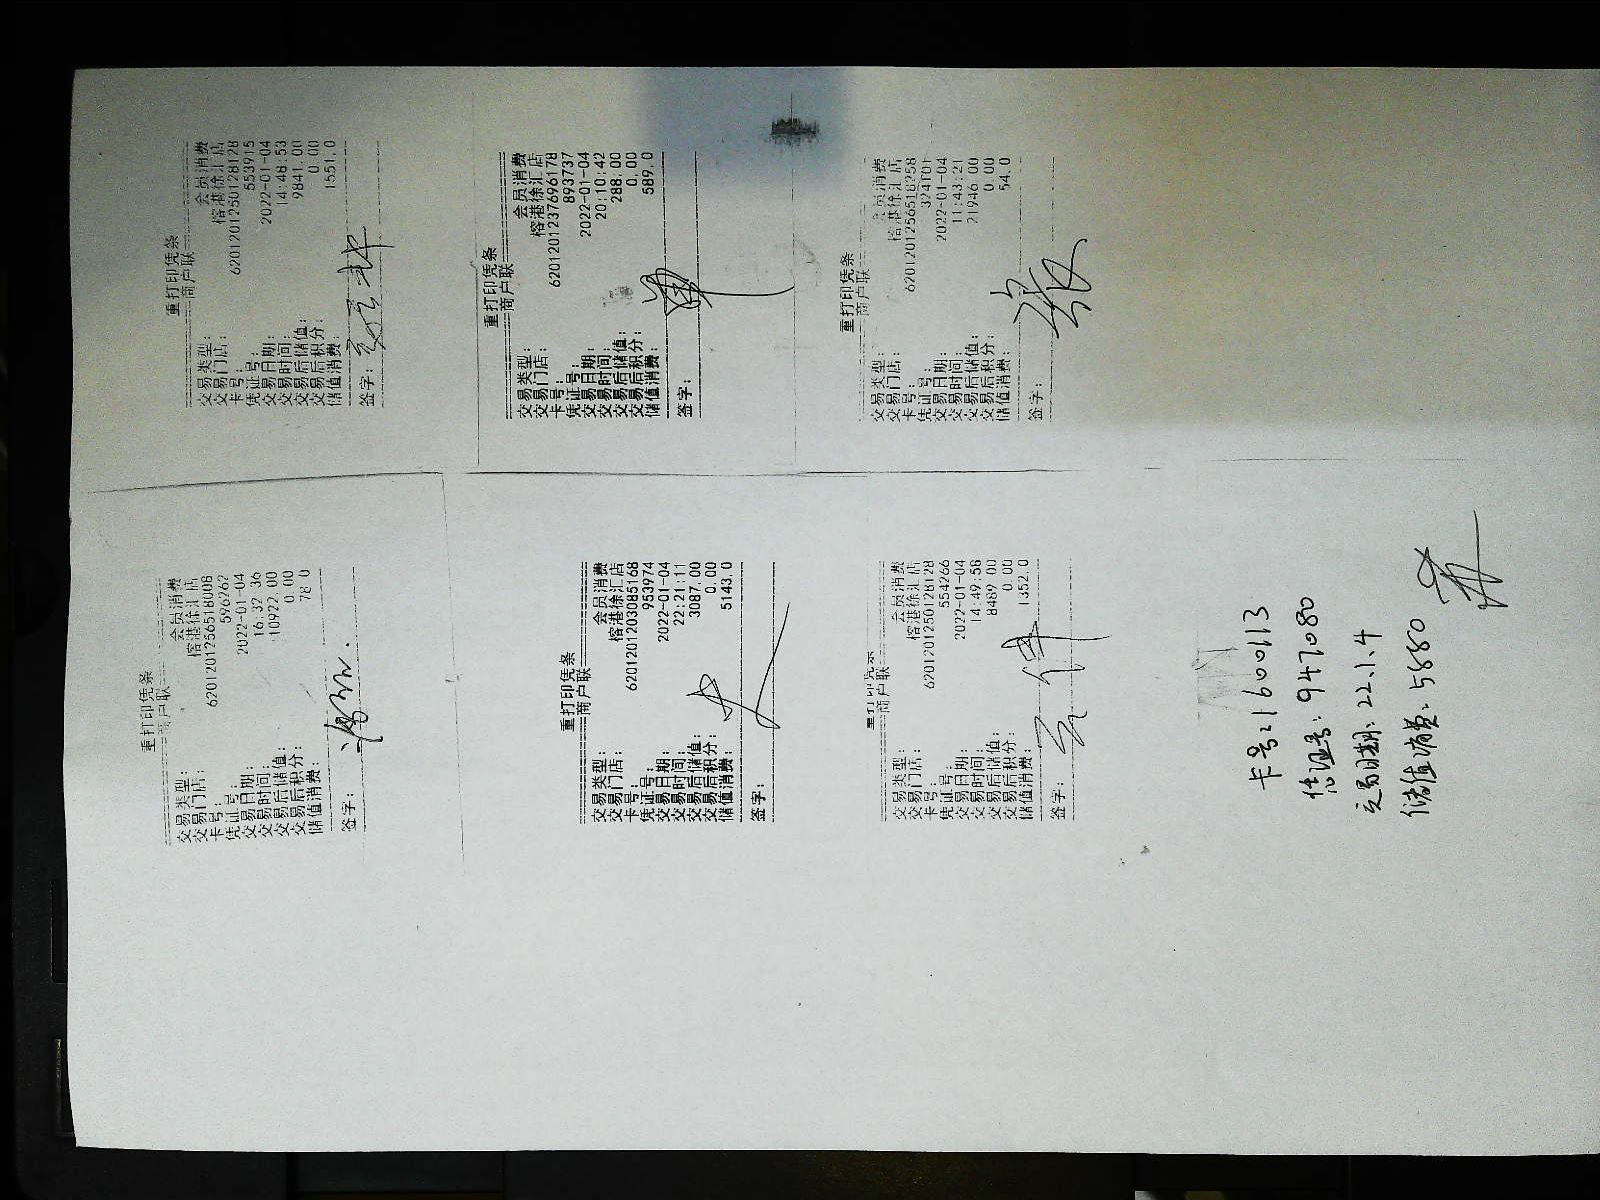 重打印凭条
商户联
交易类型： 会员消费
交易门店： 榕港徐汇店
卡号： 6201201256518008
凭证号： 596262
交易日期： 2022-01-04
交易时间： 16:32:36
交易后储值： 10922.00
交易后积分： 0.00
储值消费： 78.0
签字：
重打印凭条
商户联
交易类型： 会员消费
交易门店： 榕港徐汇店
卡号： 6201201250128128
凭证号： 553915
交易日期： 2022-01-04
交易时间： 14:48:53
交易后储值： 9841.00
交易后积分： 0.00
储值消费： 1551.0
签字：
重打印凭条
商户联
交易类型： 会员消费
交易门店： 榕港徐汇店
卡号： 6201201203085168
凭证号： 953974
交易日期： 2022-01-04
交易时间： 22:21:11
交易后储值： 3087.00
交易后积分： 0.00
储值消费： 5143.0
签字：
重打印凭条
商户联
交易类型： 会员消费
交易门店： 榕港徐汇店
卡号： 6201201237696178
凭证号： 893737
交易日期： 2022-01-04
交易时间： 20:10:42
交易后储值： 288.00
交易后积分： 0.00
储值消费： 589.0
签字：
重打印凭条
商户联
交易类型： 会员消费
交易门店： 榕港徐汇店
卡号： 6201201250128128
凭证号： 554266
交易日期： 2022-01-04
交易时间： 14:49:58
交易后储值： 8489.00
交易后积分： 0.00
储值消费： 1352.0
签字：
重打印凭条
商户联
交易类型： 会员消费
交易门店： 榕港徐汇店
卡号： 6201201256518258
凭证号： 324101
交易日期： 2022-01-04
交易时间： 11:43:21
交易后储值： 21946.00
交易后积分： 0.00
储值消费： 54.0
签字：
卡号：1600113
凭证号：947080
交易日期：22.1.4
储值消费：5880